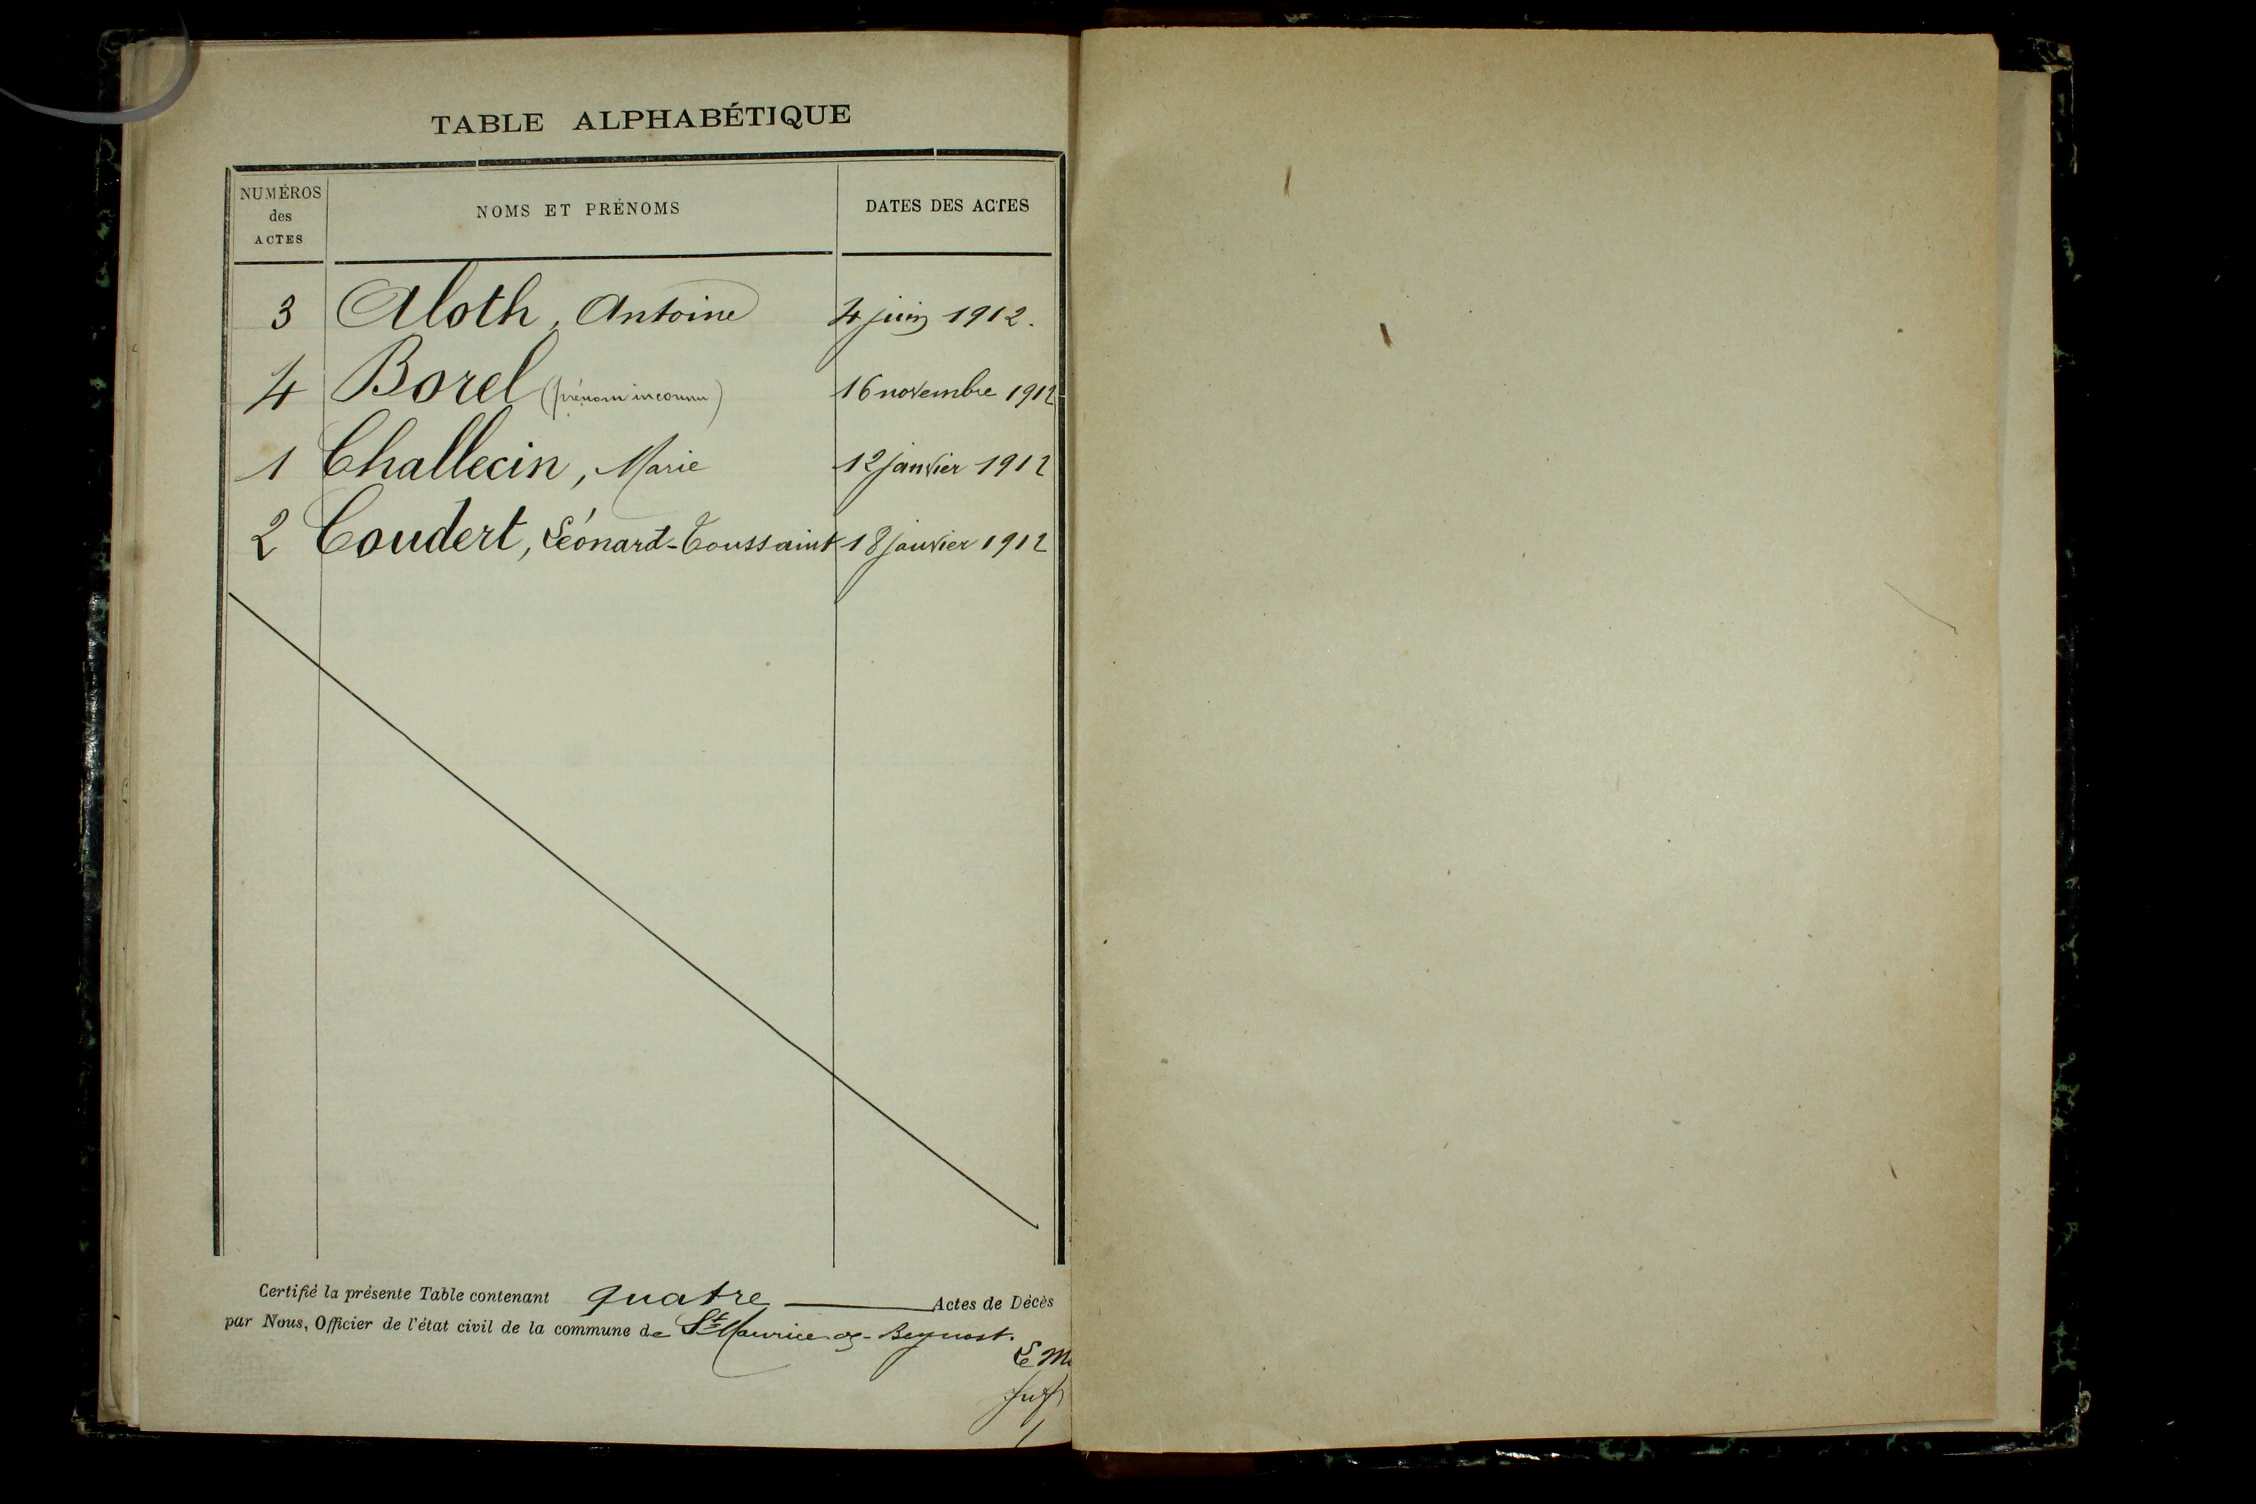 TABLE ALPHABÉTIQUE
NUMÉROS
des
ACTES
NOMS ET PRÉNOMS
DATES DES ACTES
3 Aloth, Antoine 4 juin 1912.
4 Borel (prénom inconnu) 16 novembre 1912
1 Challecin, Marie 12 janvier 1912
2 Coudert, Léonard-Toussaint 18 janvier 1912
Certifié la présente Table contenant quatre Actes de Décès
par Nous, Officier de l'état civil de la commune de St Maurice de Beynost.
Le